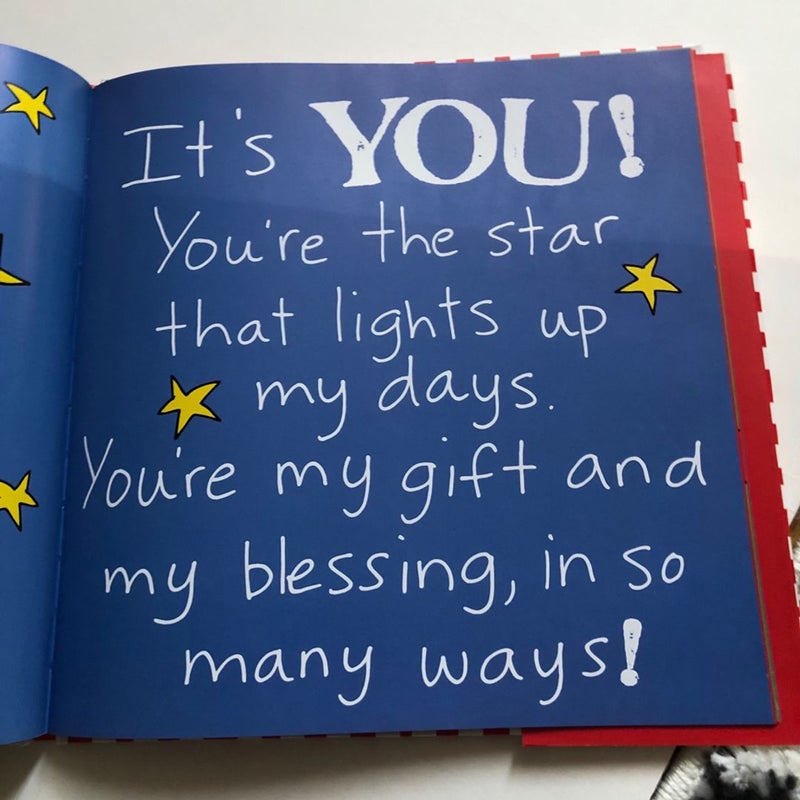 It's YOU!
You're the star
that lights up
my days.
You're my gift and
my blessing, in so
many ways!